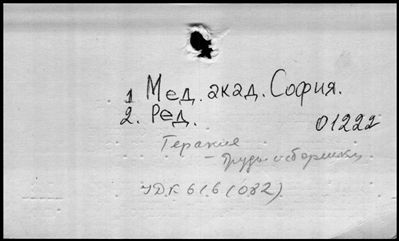 1 Мед. акад. София.
2. Ред.
01222
Терапия
- Труды и сборники
УДК 616(082).